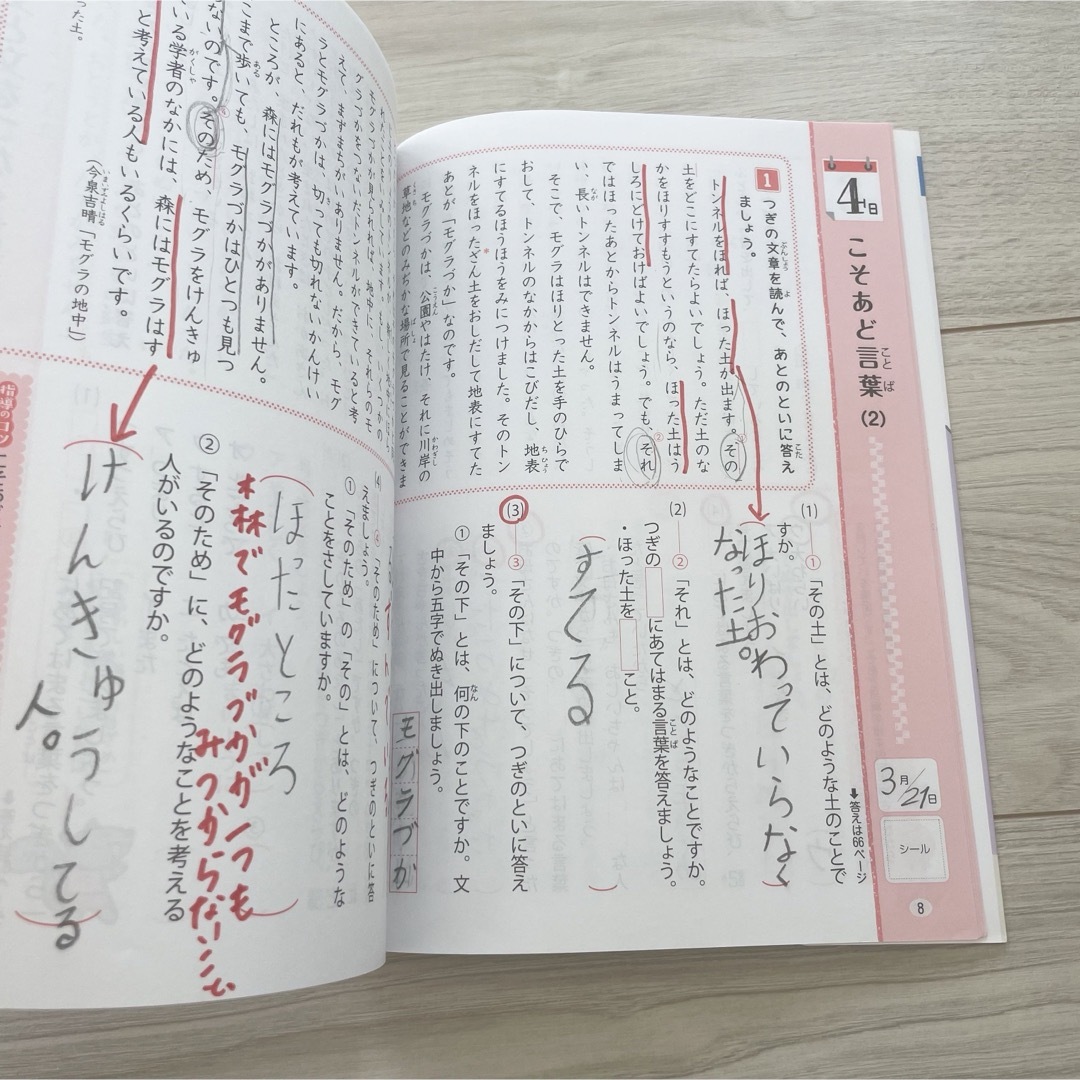 4日
こそあど言葉(2)
ことば
3月21日
シール
8
➡答えは66ページ
1
つぎの文章を読んで、あとのといに答え
ましょう。
トンネルをほれば、ほった土が出ます。その
土をどこにすてたらよいでしょう。ただ土のな
かをほりすすもうというのなら、ほった土はう
しろにどけておけばよいでしょう。でも、それ
ではほったあとからトンネルはうまってしま
い、長いトンネルはできません。
そこで、モグラはほりとった土を手のひらで
おして、トンネルのなかからはこびだし、地表
にすてるほうほうをみにつけました。そのトン
ネルをほったざん土をおしだして地表にすてた
あとが「モグラづか」なのです。
モグラづかは、公園やはたけ、それに川岸の
草地などのみぢかな場所で見ることができま
(1) ①「その土」とは、どのような土のことで
すか。
ほりおわっていらなく
なった土。
(2) ②「それ」とは、どのようなことですか。
つぎの□にあてはまる言葉を答えましょう。
・ほった土を□こと。
すてる
(3) ③「その下」について、つぎのといに答え
ましょう。
① 「その下」とは、何の下のことですか。文
中から五字でぬき出しましょう。
モグラづか
モグラづかが見られれば、地中に、それらのモ
グラづかをつないだトンネルができていると考
えて、まずまちがいありません。だから、モグ
ラとモグラづかは、切っても切れないかんけい
にあると、だれもが考えています。
ところが、森にはモグラづかがありません。
どこまで歩いても、モグラづかはひとつも見つ
からないのです。そのため、モグラをけんきゅ
うしている学者のなかには、森にはモグラはす
と考えている人もいるくらいです。
(今泉吉晴「モグラの地中」)
った土。
(4) ④「そのため」について、つぎのといに答
えましょう。
① 「そのため」の「その」とは、どのような
ことをさしていますか。
ほったところ
森でモグラづかが一つも
みつからないこと
② 「そのため」に、どのようなことを考える
人がいるのですか。
けんきゅうしてる
人。
指導のコツ